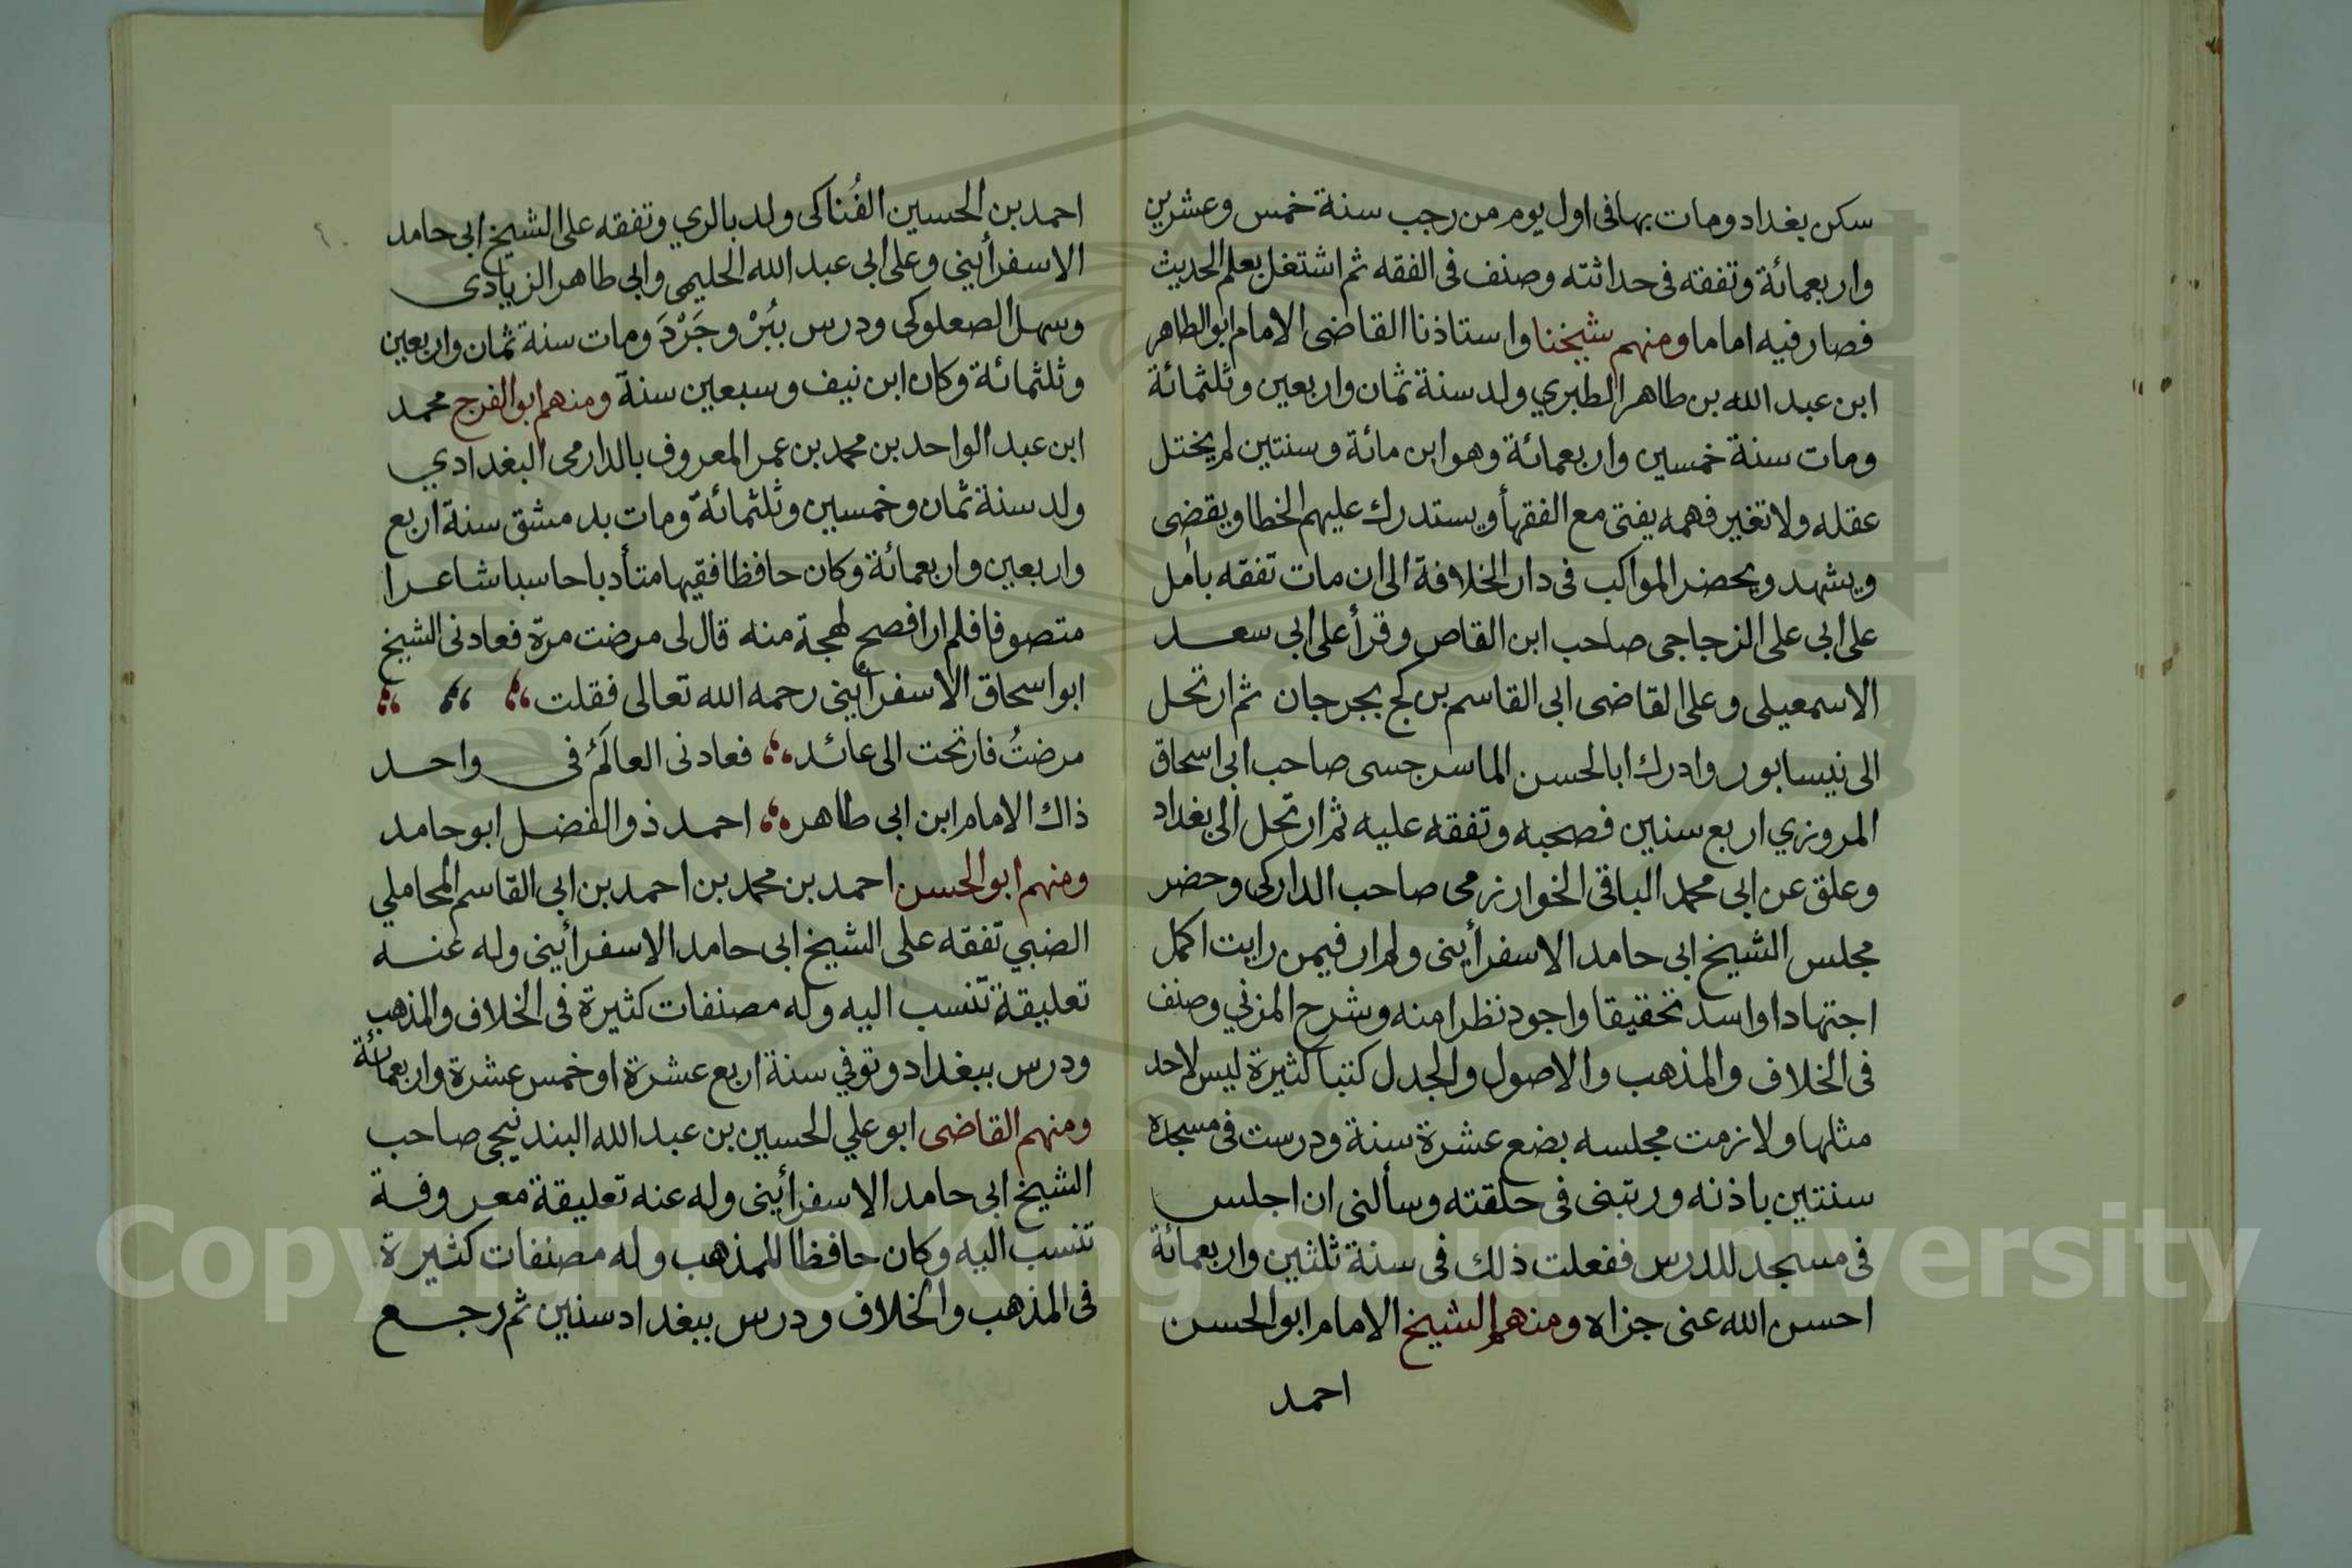 سكن بغداد ومات بها فى اول يوم من رجب سنة خمس وعشرين
واربعمائة وتفقه فى حداثته وصنف فى الفقه ثم اشتغل بعلم الحديث
فصار فيه اماما ومنهم شيخنا واستاذنا القاضى الامام ابو الطاهر
ابن عبد الله بن طاهر الطبري ولد سنة ثمان واربعين وثلثمائة
ومات سنة خمسين واربعمائة وهو ابن مائة وسنتين لم يختل
عقله ولا تغير فهمه يفتى مع الفقهأ ويستدرك عليهم الخطا ويقضى
ويشهد ويحضر المواكب فى دار الخلافة الى ان مات تفقه بامل
على ابى على الزجاجى صاحب ابن القاص وقرأ على ابى سعد
الاسمعيلى وعلى القاضى ابى القاسم بن كج بجرجان ثم ارتحل
الى نيسابور وادرك ابا الحسن الماسرجسى صاحب ابى اسحاق
المروزي اربع سنين فصحبه وتفقه عليه ثم ارتحل الى بغداد
وعلق عن ابى محمد الباقى الخوارزمى صاحب الداركى وحضر
مجلس الشيخ ابى حامد الاسفرأينى ولم ار فيمن رايت اكمل
اجتهادا واسد تحقيقا واجود نظرا منه وشرح المزني وصنف
فى الخلاف والمذهب والاصول والجدل كتبا كثيرة ليس لاحد
مثلها ولازمت مجلسه بضع عشرة سنة ودرست فى مسجده
سنتين باذنه ورتبنى فى حلقته وسألنى ان اجلس
فى مسجد للدرس ففعلت ذلك فى سنة ثلثين واربعمائة
احسن الله عنى جزاه ومنهم الشيخ الامام ابو الحسن
احمد
احمد بن الحسين الفُناكى ولد بالري وتفقه على الشيخ ابى حامد
الاسفرأينى وعلى ابى عبد الله الحليمى وابى طاهر الزيادى
وسهل الصعلوكى ودرس ببُرْوجَرْدَ ومات سنة ثمان واربعين
وثلثمائة وكان ابن نيف وسبعين سنة ومنهم ابو الفرج محمد
ابن عبد الواحد بن محمد بن عمر المعروف بالدارمى البغدادي
ولد سنة ثمان وخمسين وثلثمائة ومات بدمشق سنة اربع
واربعين واربعمائة وكان حافظا فقيها متأدبا حاسبا شاعرا
متصوفا فلم ار افصح لهجة منه قال لى مرضت مرة فعادنى الشيخ
ابو اسحاق الاسفرأينى رحمه الله تعالى فقلت
مرضتُ فارتحت الى عائد فعادنى العالَمُ فى واحد
ذاك الامام ابن ابى طاهر احمد ذو الفضل ابو حامد
ومنهم ابو الحسن احمد بن محمد بن احمد بن ابى القاسم المحاملي
الضبي تفقه على الشيخ ابى حامد الاسفرأينى وله عنه
تعليقة تنسب اليه وله مصنفات كثيرة فى الخلاف والمذهب
ودرس ببغداد وتوفي سنة اربع عشرة او خمس عشرة واربعمائة
ومنهم القاضى ابو علي الحسين بن عبد الله البندنيجى صاحب
الشيخ ابى حامد الاسفرأينى وله عنه تعليقة معروفة
تنسب اليه وكان حافظا للمذهب وله مصنفات كثيرة
فى المذهب والخلاف ودرس ببغداد سنين ثم رجع
Copyright © King Saud University